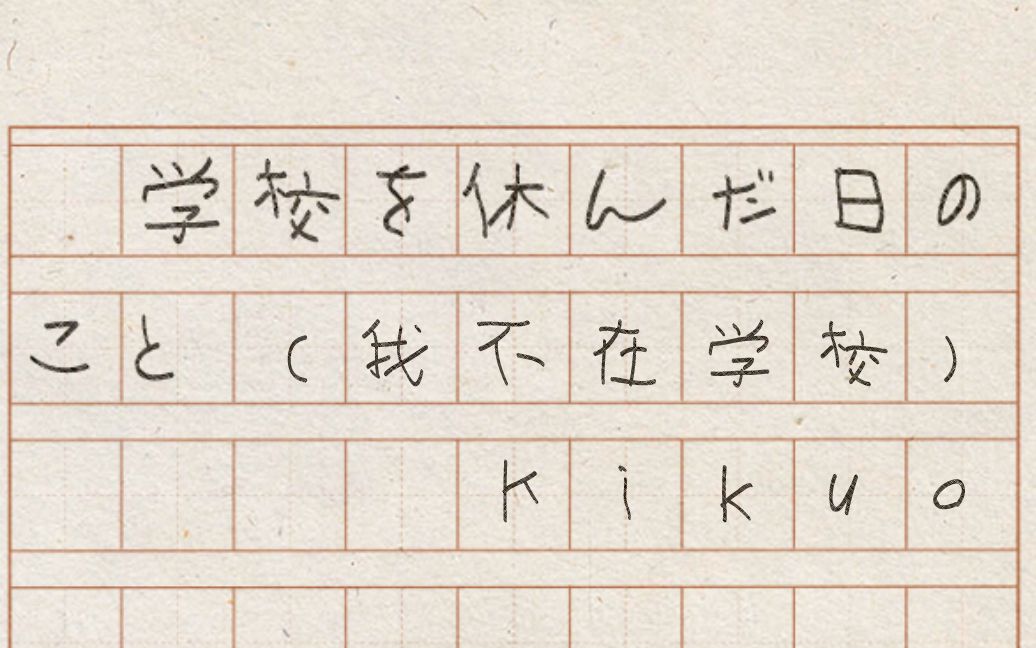 学校を休んだ日の
こと（我不在学校）
kikuo